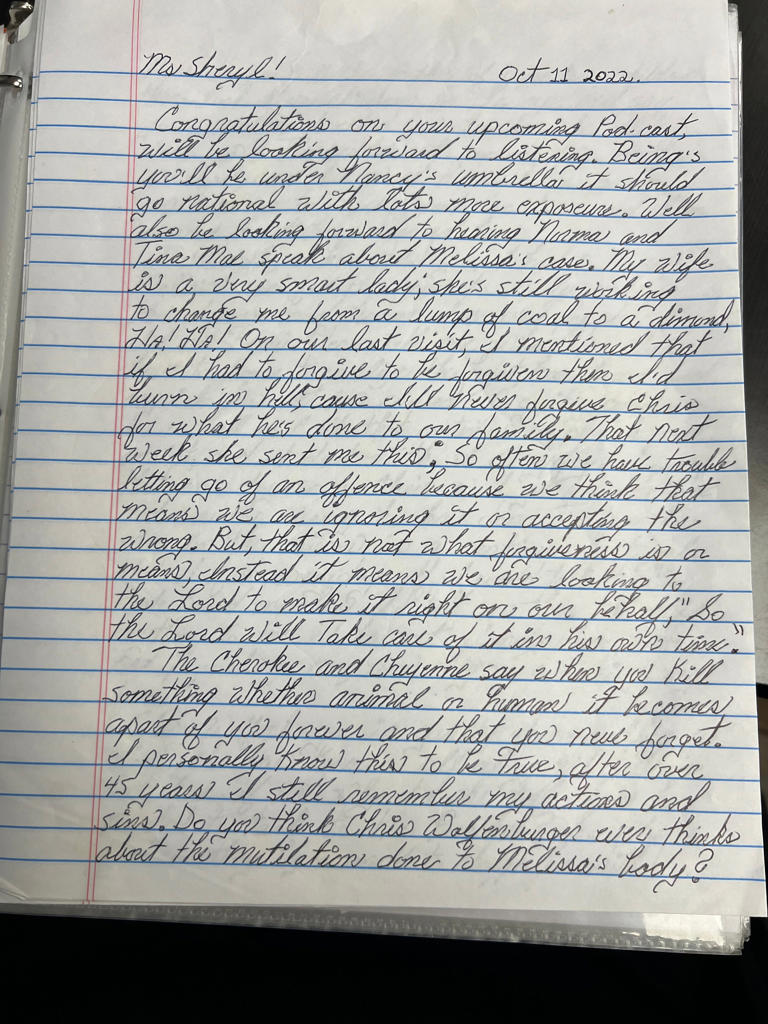 Ms Sheryl! Oct 11 2022.
Congratulations on your upcoming Pod-cast,
will be looking forward to listening. Being's
you'll be under Nancy's umbrella it should
go national with lots more exposeure. We'll
also be looking forward to hearing Norma and
Tina Mae speak about Melissa's case. My wife
is a very smart lady; she's still working
to change me from a lump of coal to a dimond,
HA! HA! On our last visit, I mentioned that
if I had to forgive to be forgiven then I'd
burn in hell, cause I'll never forgive Chris
for what he's done to our family. That next
week she sent me this: So often we have trouble
letting go of an offence because we think that
means we are ignoring it or accepting the
wrong. But, that is not what forgiveness is or
means, Instead it means we are looking to
the Lord to make it right on our behalf," So,
the Lord will Take care of it in his own time."
The Cherokee and Cheyenne say when you kill
something whether animal or human it becomes
apart of you forever and that you never forget.
I personally know this to be True, after over
45 years I still remember my actions and
sins. Do you think Chris Wolfenbarger ever thinks
about the mutilation done to Melissa's body?